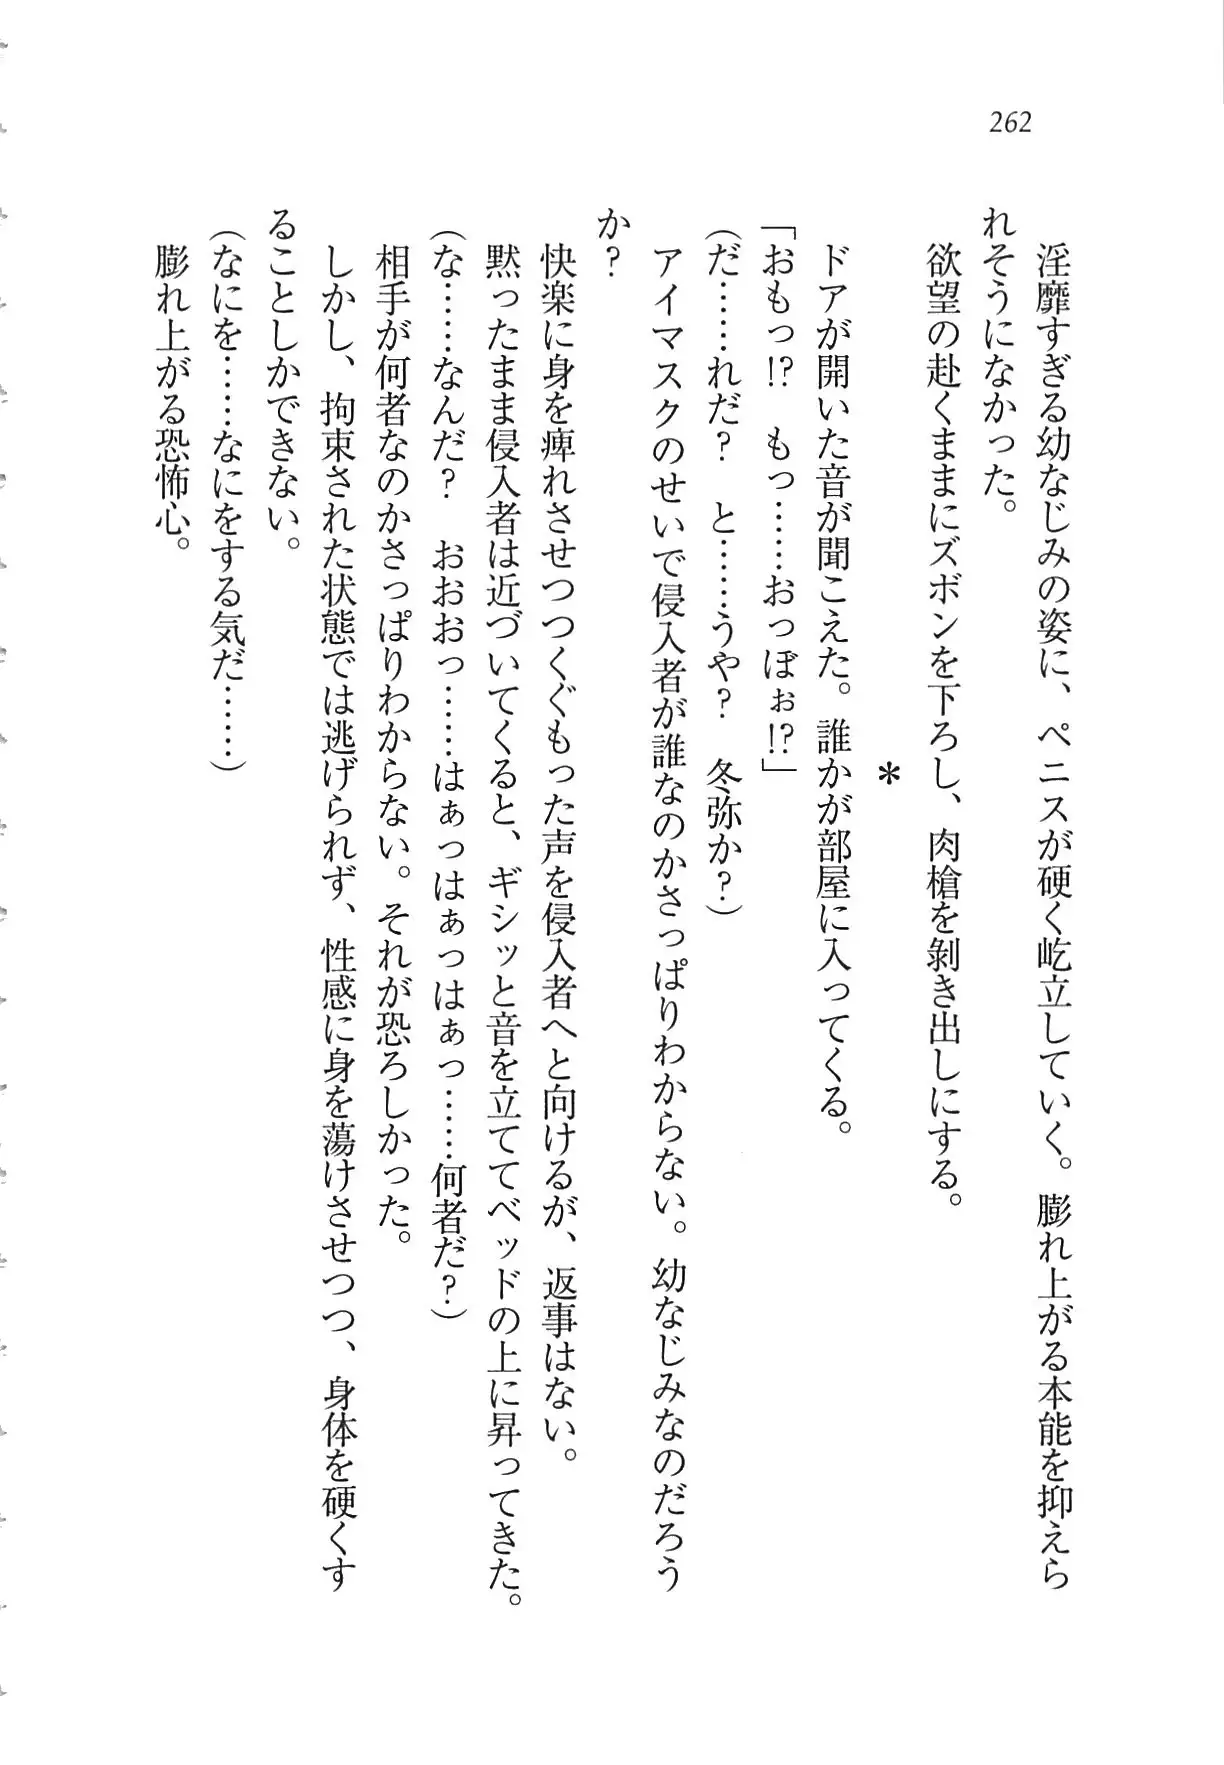 262
淫靡すぎる幼なじみの姿に、ペニスが硬く屹立していく。膨れ上がる本能を抑えら
れそうになかった。
欲望の赴くままにズボンを下ろし、肉槍を剝き出しにする。
＊
ドアが開いた音が聞こえた。誰かが部屋に入ってくる。
「おもっ!?　もっ……おっぼぉ!?」
（だ……れだ？　と……うや？　冬弥か？）
アイマスクのせいで侵入者が誰なのかさっぱりわからない。幼なじみなのだろう
か？
快楽に身を痺れさせつつくぐもった声を侵入者へと向けるが、返事はない。
黙ったまま侵入者は近づいてくると、ギシッと音を立ててベッドの上に昇ってきた。
（な……なんだ？　おおおっ……はぁっはぁっはぁっ……何者だ？）
相手が何者なのかさっぱりわからない。それが恐ろしかった。
しかし、拘束された状態では逃げられず、性感に身を蕩けさせつつ、身体を硬くす
ることしかできない。
（なにを……なにをする気だ……）
膨れ上がる恐怖心。